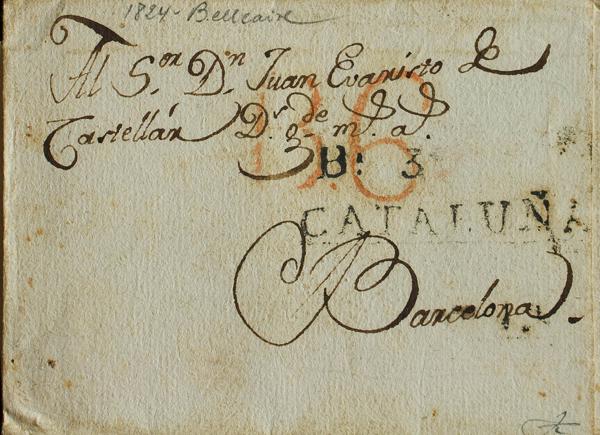 1824 - Bellcaire
Al S.or D.n Juan Evaristo de
Castellán D.r g.de m.s a.s
B: 3
CATALUÑA
Barcelona